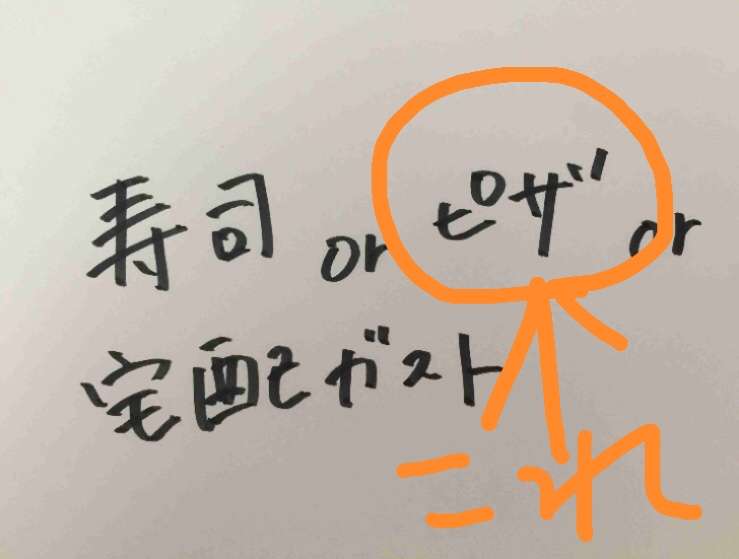 寿司 or ピザ or
宅配ガスト
これ